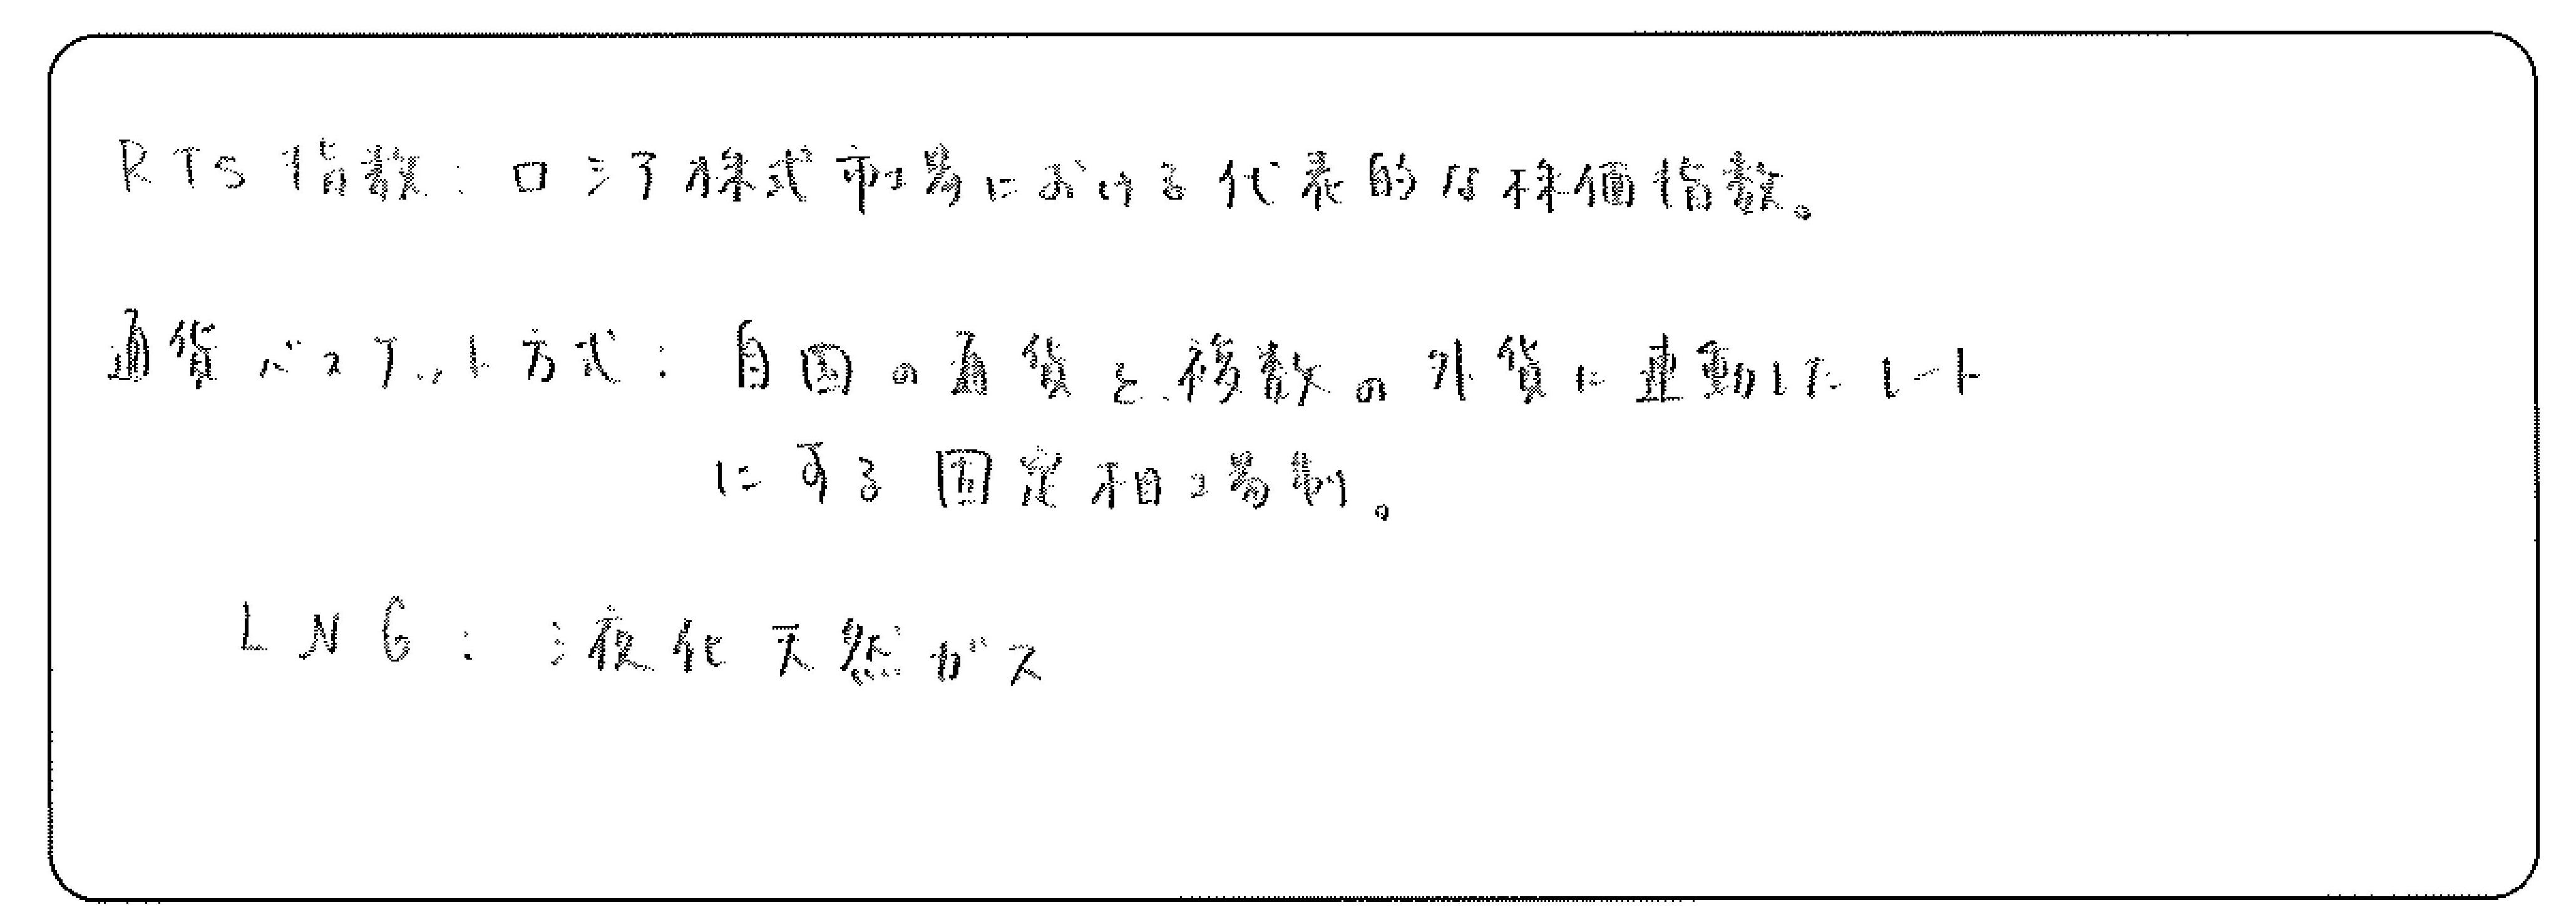 RTS指数：ロシア株式市場における代表的な株価指数。
通貨バスケット方式：自国の通貨を複数の外貨に連動したレート
にする固定相場制。
LNG：液化天然ガス